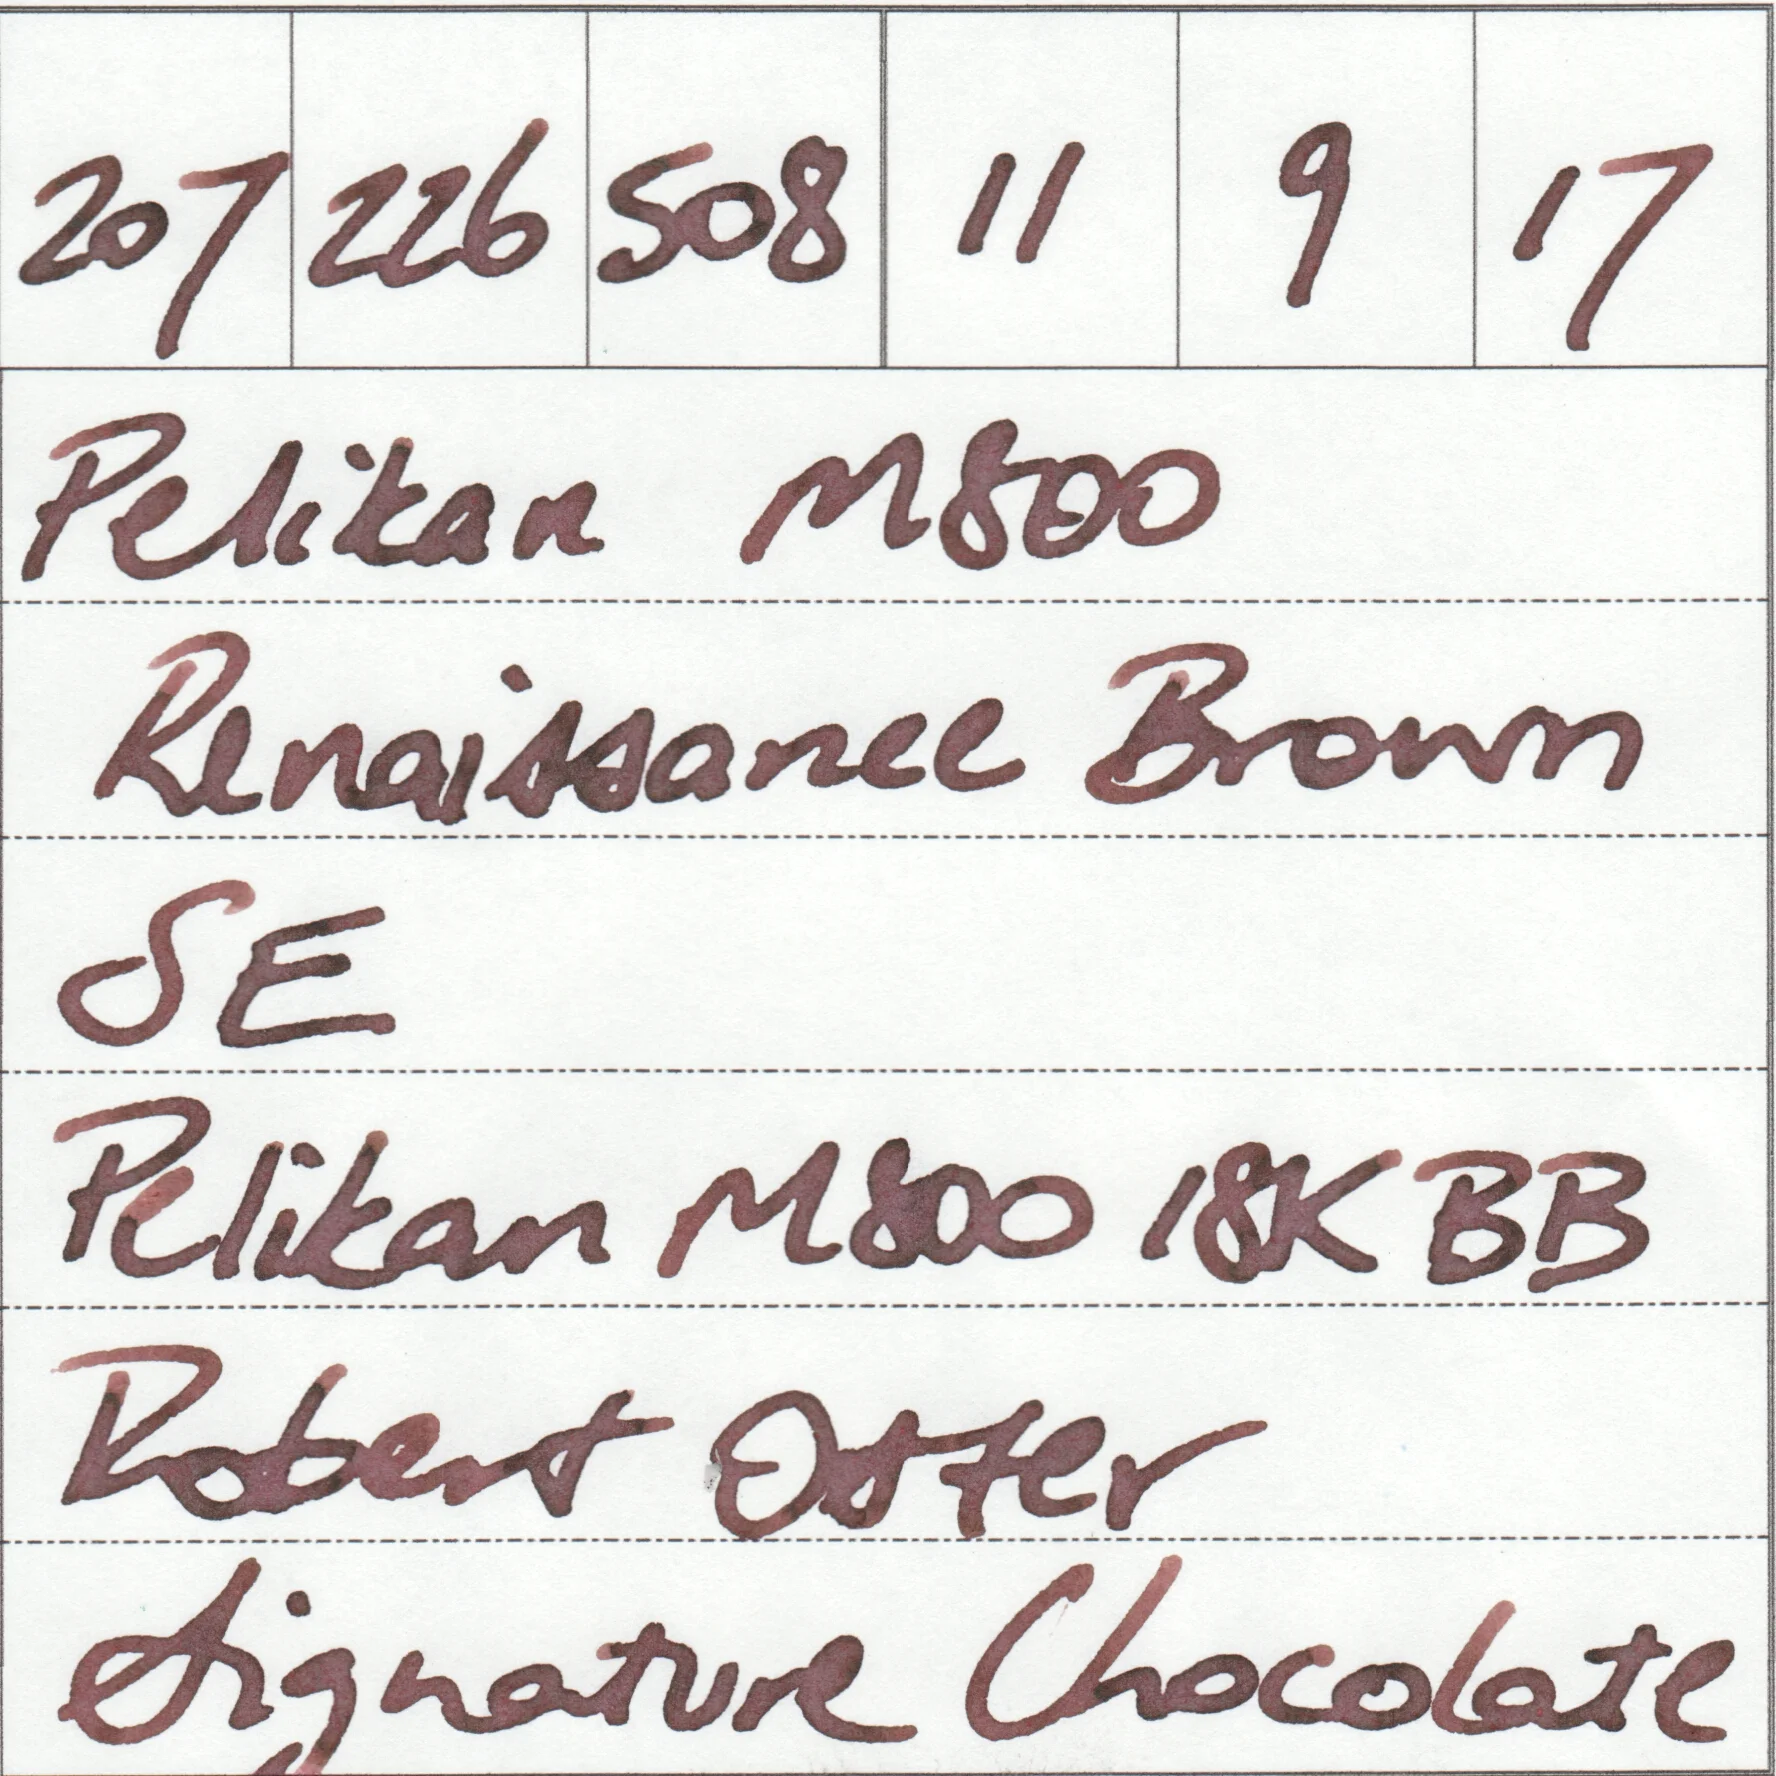 207 226 508 11 9 17
Pelikan M800
Renaissance Brown
SE
Pelikan M800 18K BB
Robert Oster
Signature Chocolate